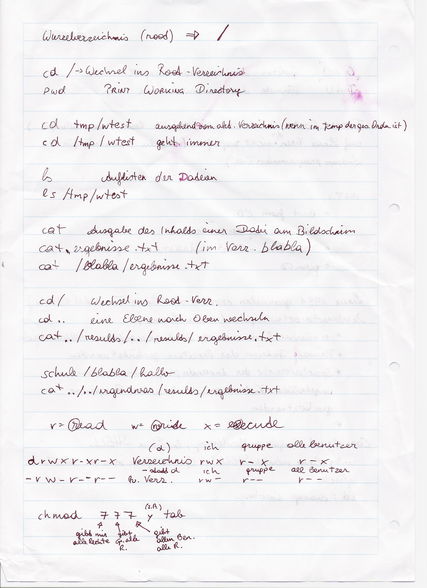 Wurzelverzeichnis (rood) ⇒ /
cd / → Wechsel ins Rood-Verzeichnis
pwd PRINT WORKING Directory
cd tmp/wtest ausgehend vom akt. Verzeichnis (wenn im temp der ges. Ordn. ist)
cd /tmp/wtest geht immer
ls Auflisten der Dateien
ls /tmp/wtest
cat Ausgabe des Inhalts einer Datei am Bildschirm
cat ergebnisse.txt (im Verz. blabla)
cat /blabla/ergebnisse.txt
cd / Wechsel ins Rood-Verz.
cd .. eine Ebene nach Oben wechseln
cat ../results/../results/ergebnisse.txt
schule/blabla/hallo
cat ../../irgendwas/results/ergebnisse.txt
r = read w = wride x = execude
(d) ich gruppe alle benutzer
drwxr-xr-x Verzeichnis rwx r-x r-x
statt d ich gruppe all Benutzer
-rw-r--r-- Verz. rw- r-- r--
chmod 777 y tab
gibt mir gibt gibt
alle Rechte g. alle allen Ben.
R. alle R.